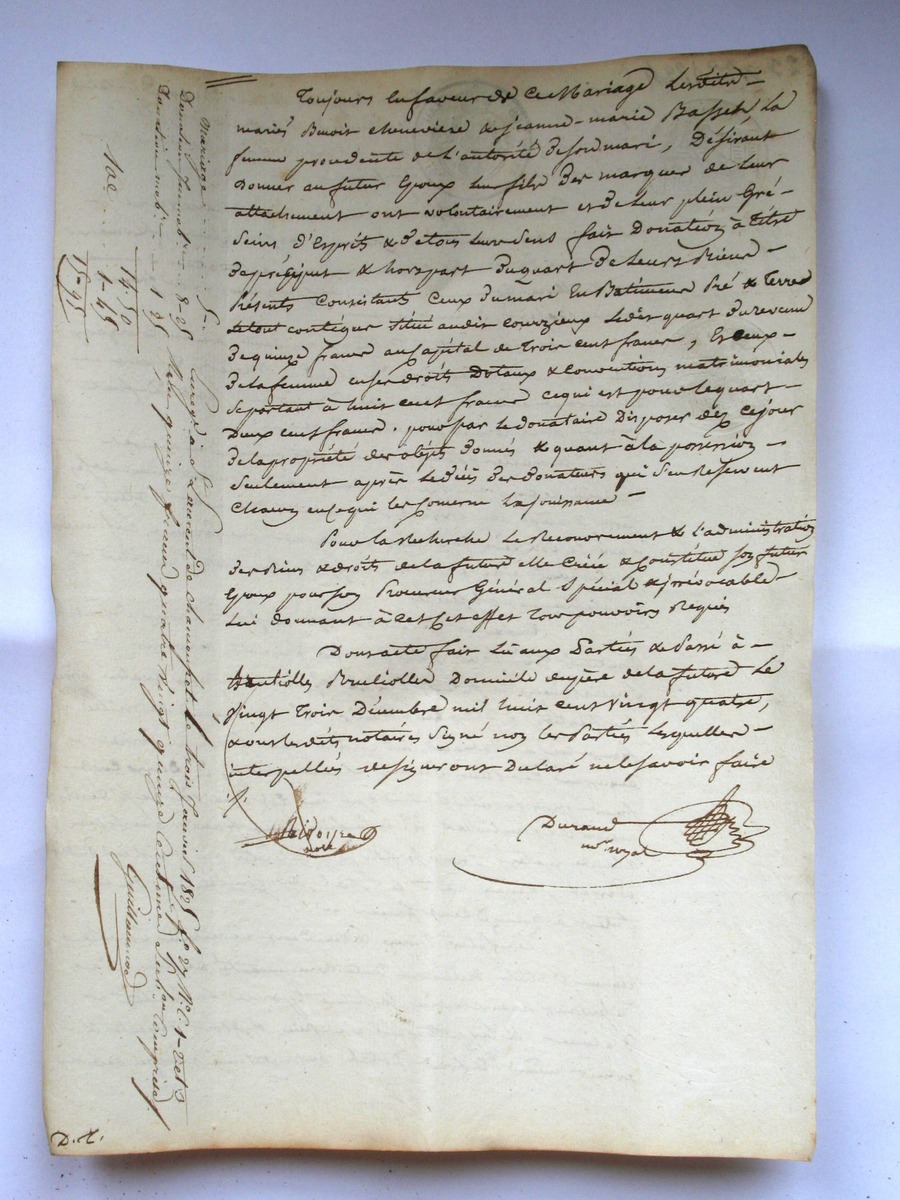 Toujours en faveur de ce Mariage lesdits
mariés Benoit cheneviere & Jeanne-marie Basset, la
femme procédente de l'autorité de son mari, Désirant
donner au futur Epoux leur fils des marques de leur
attachement ont volontairement et de leur plein Gré
Seins d'Esprits & de tous leurs sens fait Donation à Titre
de préciput & hors part Du quart De Leurs Biens
Présents Consistants Ceux Du mari En Batiments Pré & Terres
le tout contégue Situé audit courzieux ledit quart Du revenu
De quinze francs au Capital de Trois cent francs, Et Ceux
De la femme en ses droits Dotaux & conventions matrimoniales
se portant à huit cent francs ce qui est pour le quart
Deux cent francs. pour par le donataire Disposer dès ce jour
De la propriété des objets donnés & quant à la possession
Seulement après le Décés Des Donateurs qui s'en reservent
Chacun en ce qui les concerne la Jouissance
Pour la recherche le Recouvrement & l'administration
Des Biens & droits de la future elle Créé & Constitue son futur
Epoux pour son Procureur Général Spécial & irrévocable
Lui donnant à cet effet tous pouvoirs Requis
Dont acte fait lu aux Parties & Passé à
Brulioles Domicile du père de la future Le
Vingt Trois Décembre mil huit cent vingt quatre,
& ont lesdits notaires Signé non les Parties lesquelles
interpellées de signer ont Déclaré ne le savoir faire
Durand
nore royal
Mariage 5
Donation immob. 8-25
Donation mob. 1 25
14 50
1-45
15-95
Enregé à St Laurent de chamousset le trois Janvier 1825 fo 27 Ro C. 1
quinze francs quatre vingt quinze Centimes Subon Comprise
Guillermet
D. t.